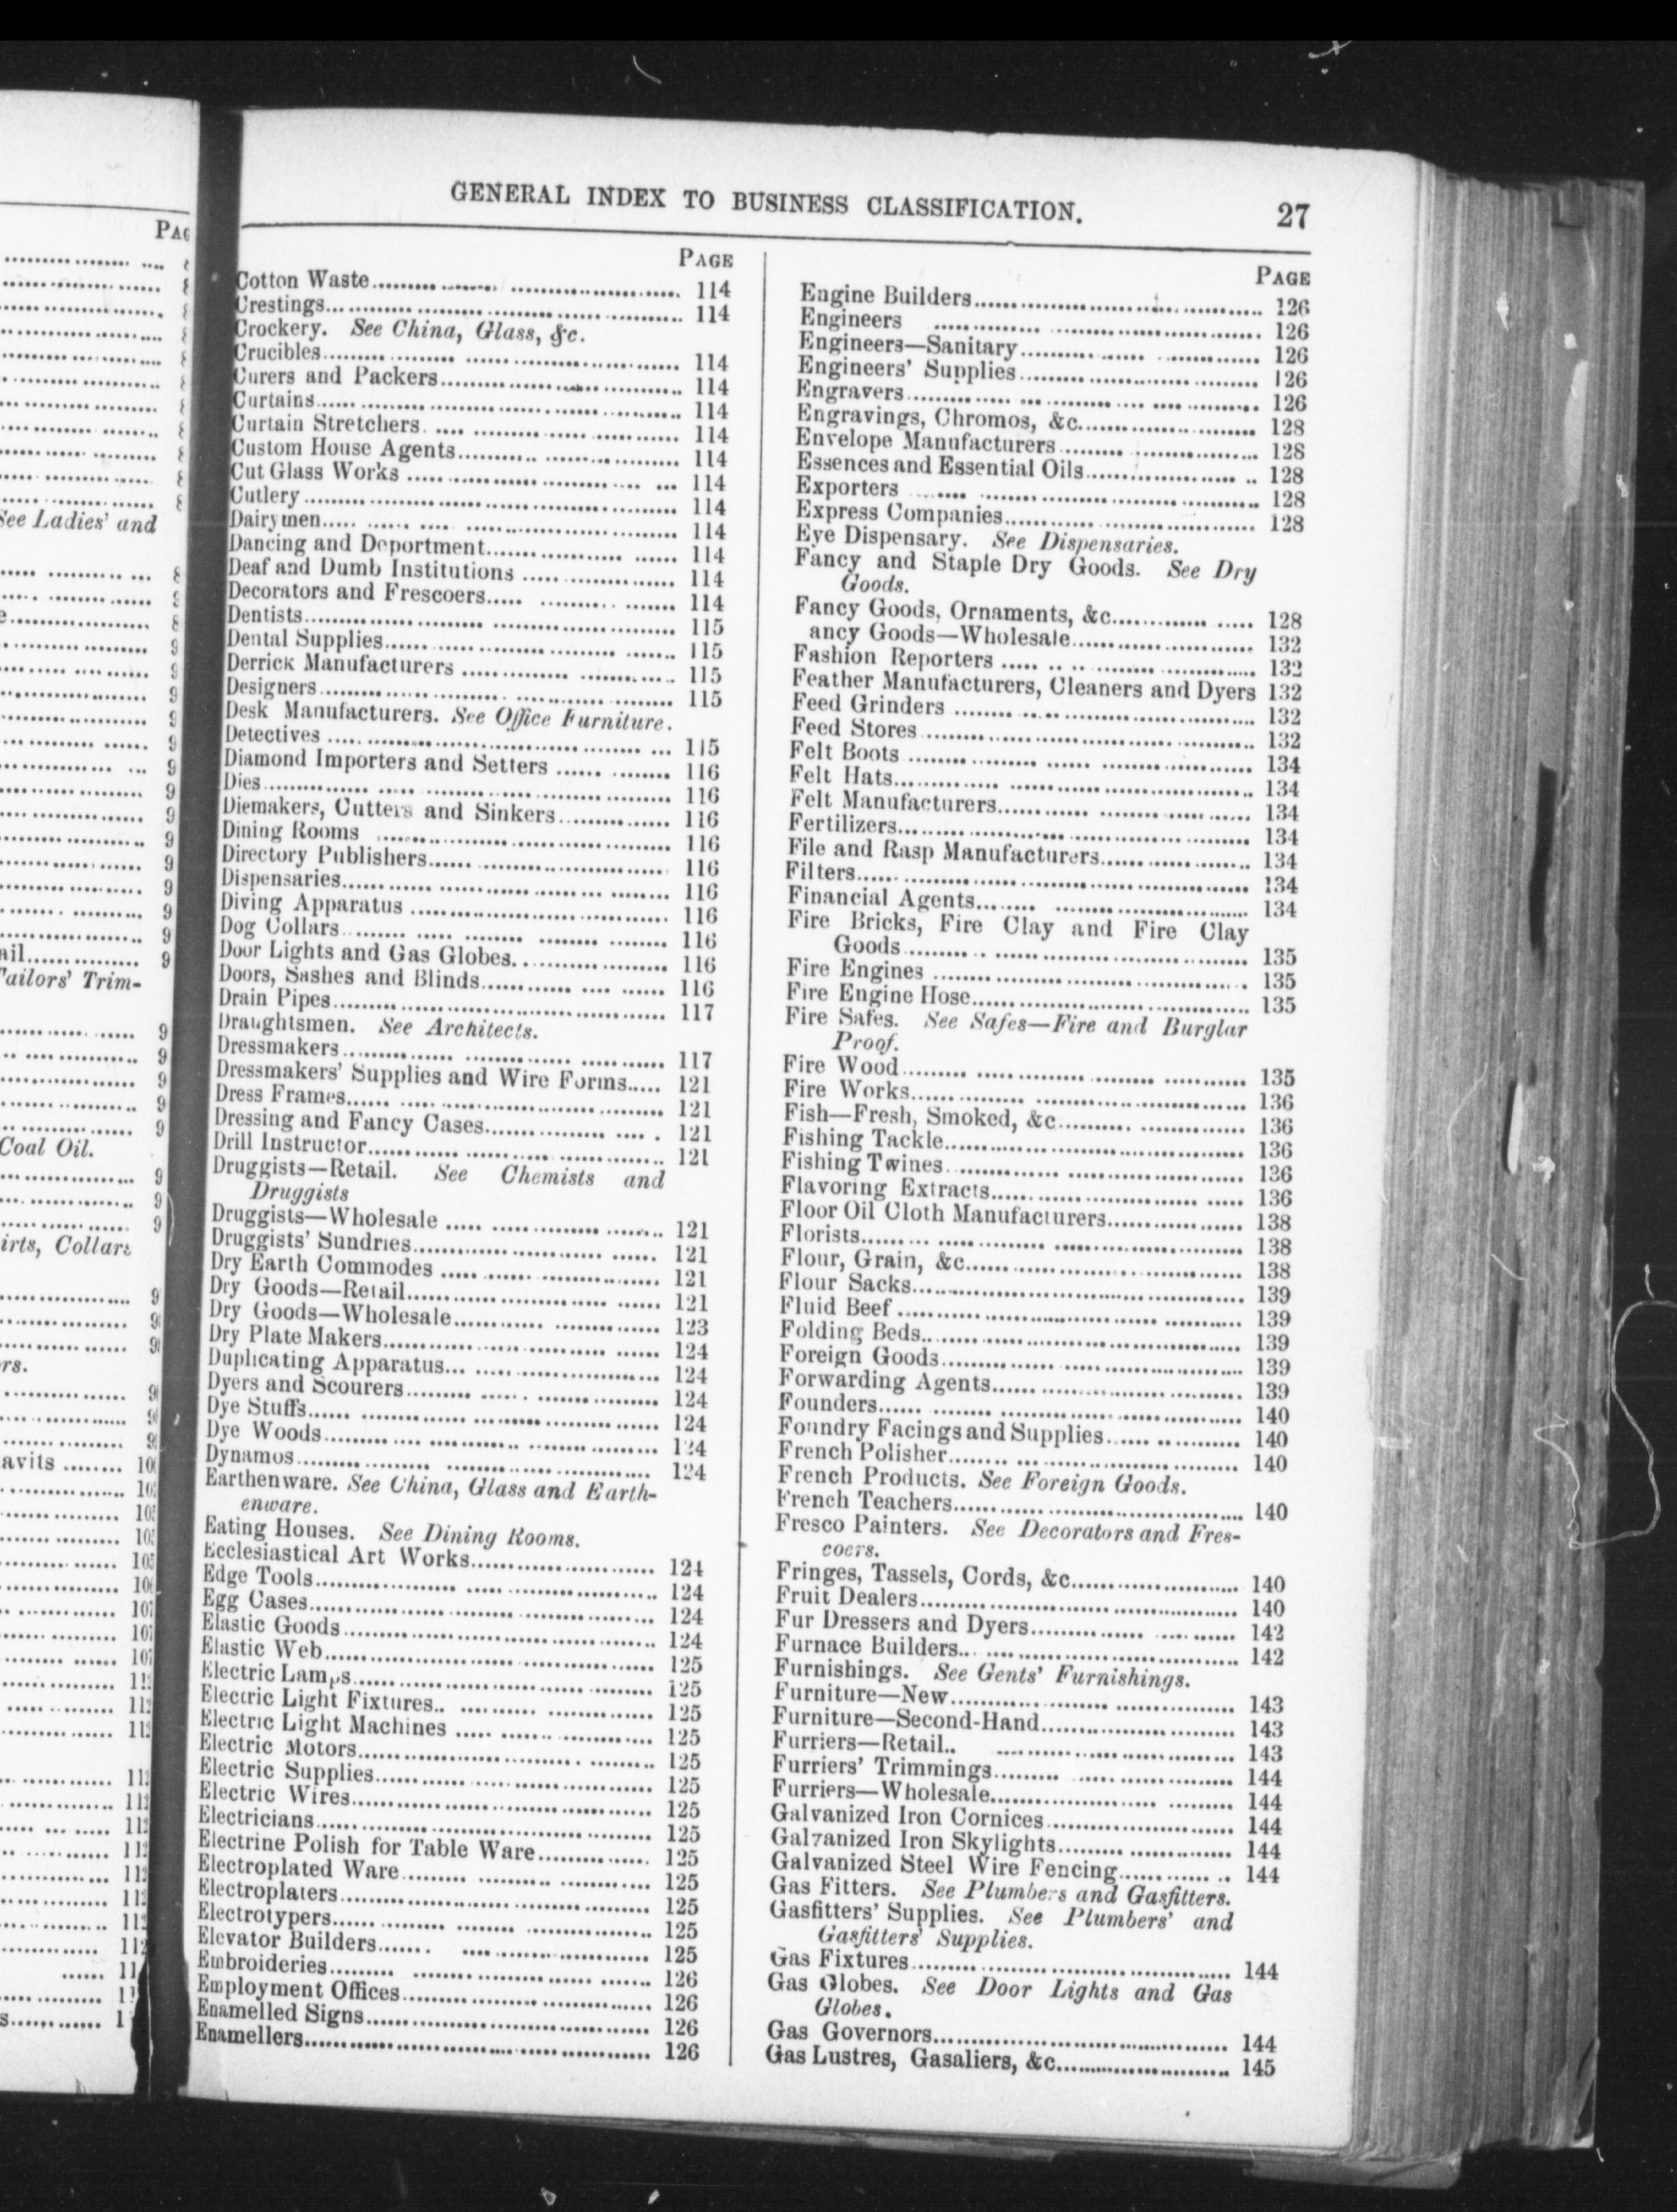 GENERAL INDEX TO BUSINESS CLASSIFICATION. 27
PAGE
Cotton Waste 114
Crestings 114
Crockery. See China, Glass, &c.
Crucibles 114
Curers and Packers 114
Curtains 114
Curtain Stretchers 114
Custom House Agents 114
Cut Glass Works 114
Cutlery 114
Dairymen 114
Dancing and Deportment 114
Deaf and Dumb Institutions 114
Decorators and Frescoers 114
Dentists 115
Dental Supplies 115
Derrick Manufacturers 115
Designers 115
Desk Manufacturers. See Office Furniture.
Detectives 115
Diamond Importers and Setters 116
Dies 116
Diemakers, Cutters and Sinkers 116
Dining Rooms 116
Directory Publishers 116
Dispensaries 116
Diving Apparatus 116
Dog Collars 116
Door Lights and Gas Globes 116
Doors, Sashes and Blinds 116
Drain Pipes 117
Draughtsmen. See Architects.
Dressmakers 117
Dressmakers' Supplies and Wire Forms 121
Dress Frames 121
Dressing and Fancy Cases 121
Drill Instructor 121
Druggists—Retail. See Chemists and
Druggists
Druggists—Wholesale 121
Druggists' Sundries 121
Dry Earth Commodes 121
Dry Goods—Retail 121
Dry Goods—Wholesale 123
Dry Plate Makers 124
Duplicating Apparatus 124
Dyers and Scourers 124
Dye Stuffs 124
Dye Woods 124
Dynamos 124
Earthenware. See China, Glass and Earth-
enware.
Eating Houses. See Dining Rooms.
Ecclesiastical Art Works 124
Edge Tools 124
Egg Cases 124
Elastic Goods 124
Elastic Web 125
Electric Lamps 125
Electric Light Fixtures 125
Electric Light Machines 125
Electric Motors 125
Electric Supplies 125
Electric Wires 125
Electricians 125
Electrine Polish for Table Ware 125
Electroplated Ware 125
Electroplaters 125
Electrotypers 125
Elevator Builders 125
Embroideries 126
Employment Offices 126
Enamelled Signs 126
Enamellers 126
PAGE
Engine Builders 126
Engineers 126
Engineers—Sanitary 126
Engineers' Supplies 126
Engravers 126
Engravings, Chromos, &c 128
Envelope Manufacturers 128
Essences and Essential Oils 128
Exporters 128
Express Companies 128
Eye Dispensary. See Dispensaries.
Fancy and Staple Dry Goods. See Dry
Goods.
Fancy Goods, Ornaments, &c 128
ancy Goods—Wholesale 132
Fashion Reporters 132
Feather Manufacturers, Cleaners and Dyers 132
Feed Grinders 132
Feed Stores 132
Felt Boots 134
Felt Hats 134
Felt Manufacturers 134
Fertilizers 134
File and Rasp Manufacturers 134
Filters 134
Financial Agents 134
Fire Bricks, Fire Clay and Fire Clay
Goods 135
Fire Engines 135
Fire Engine Hose 135
Fire Safes. See Safes—Fire and Burglar
Proof.
Fire Wood 135
Fire Works 136
Fish—Fresh, Smoked, &c 136
Fishing Tackle 136
Fishing Twines 136
Flavoring Extracts 136
Floor Oil Cloth Manufacturers 138
Florists 138
Flour, Grain, &c 138
Flour Sacks 139
Fluid Beef 139
Folding Beds 139
Foreign Goods 139
Forwarding Agents 139
Founders 140
Foundry Facings and Supplies 140
French Polisher 140
French Products. See Foreign Goods.
French Teachers 140
Fresco Painters. See Decorators and Fres-
coers.
Fringes, Tassels, Cords, &c 140
Fruit Dealers 140
Fur Dressers and Dyers 142
Furnace Builders 142
Furnishings. See Gents' Furnishings.
Furniture—New 143
Furniture—Second-Hand 143
Furriers—Retail 143
Furriers' Trimmings 144
Furriers—Wholesale 144
Galvanized Iron Cornices 144
Galvanized Iron Skylights 144
Galvanized Steel Wire Fencing 144
Gas Fitters. See Plumbers and Gasfitters.
Gasfitters' Supplies. See Plumbers' and
Gasfitters' Supplies.
Gas Fixtures 144
Gas Globes. See Door Lights and Gas
Globes.
Gas Governors 144
Gas Lustres, Gasaliers, &c 145